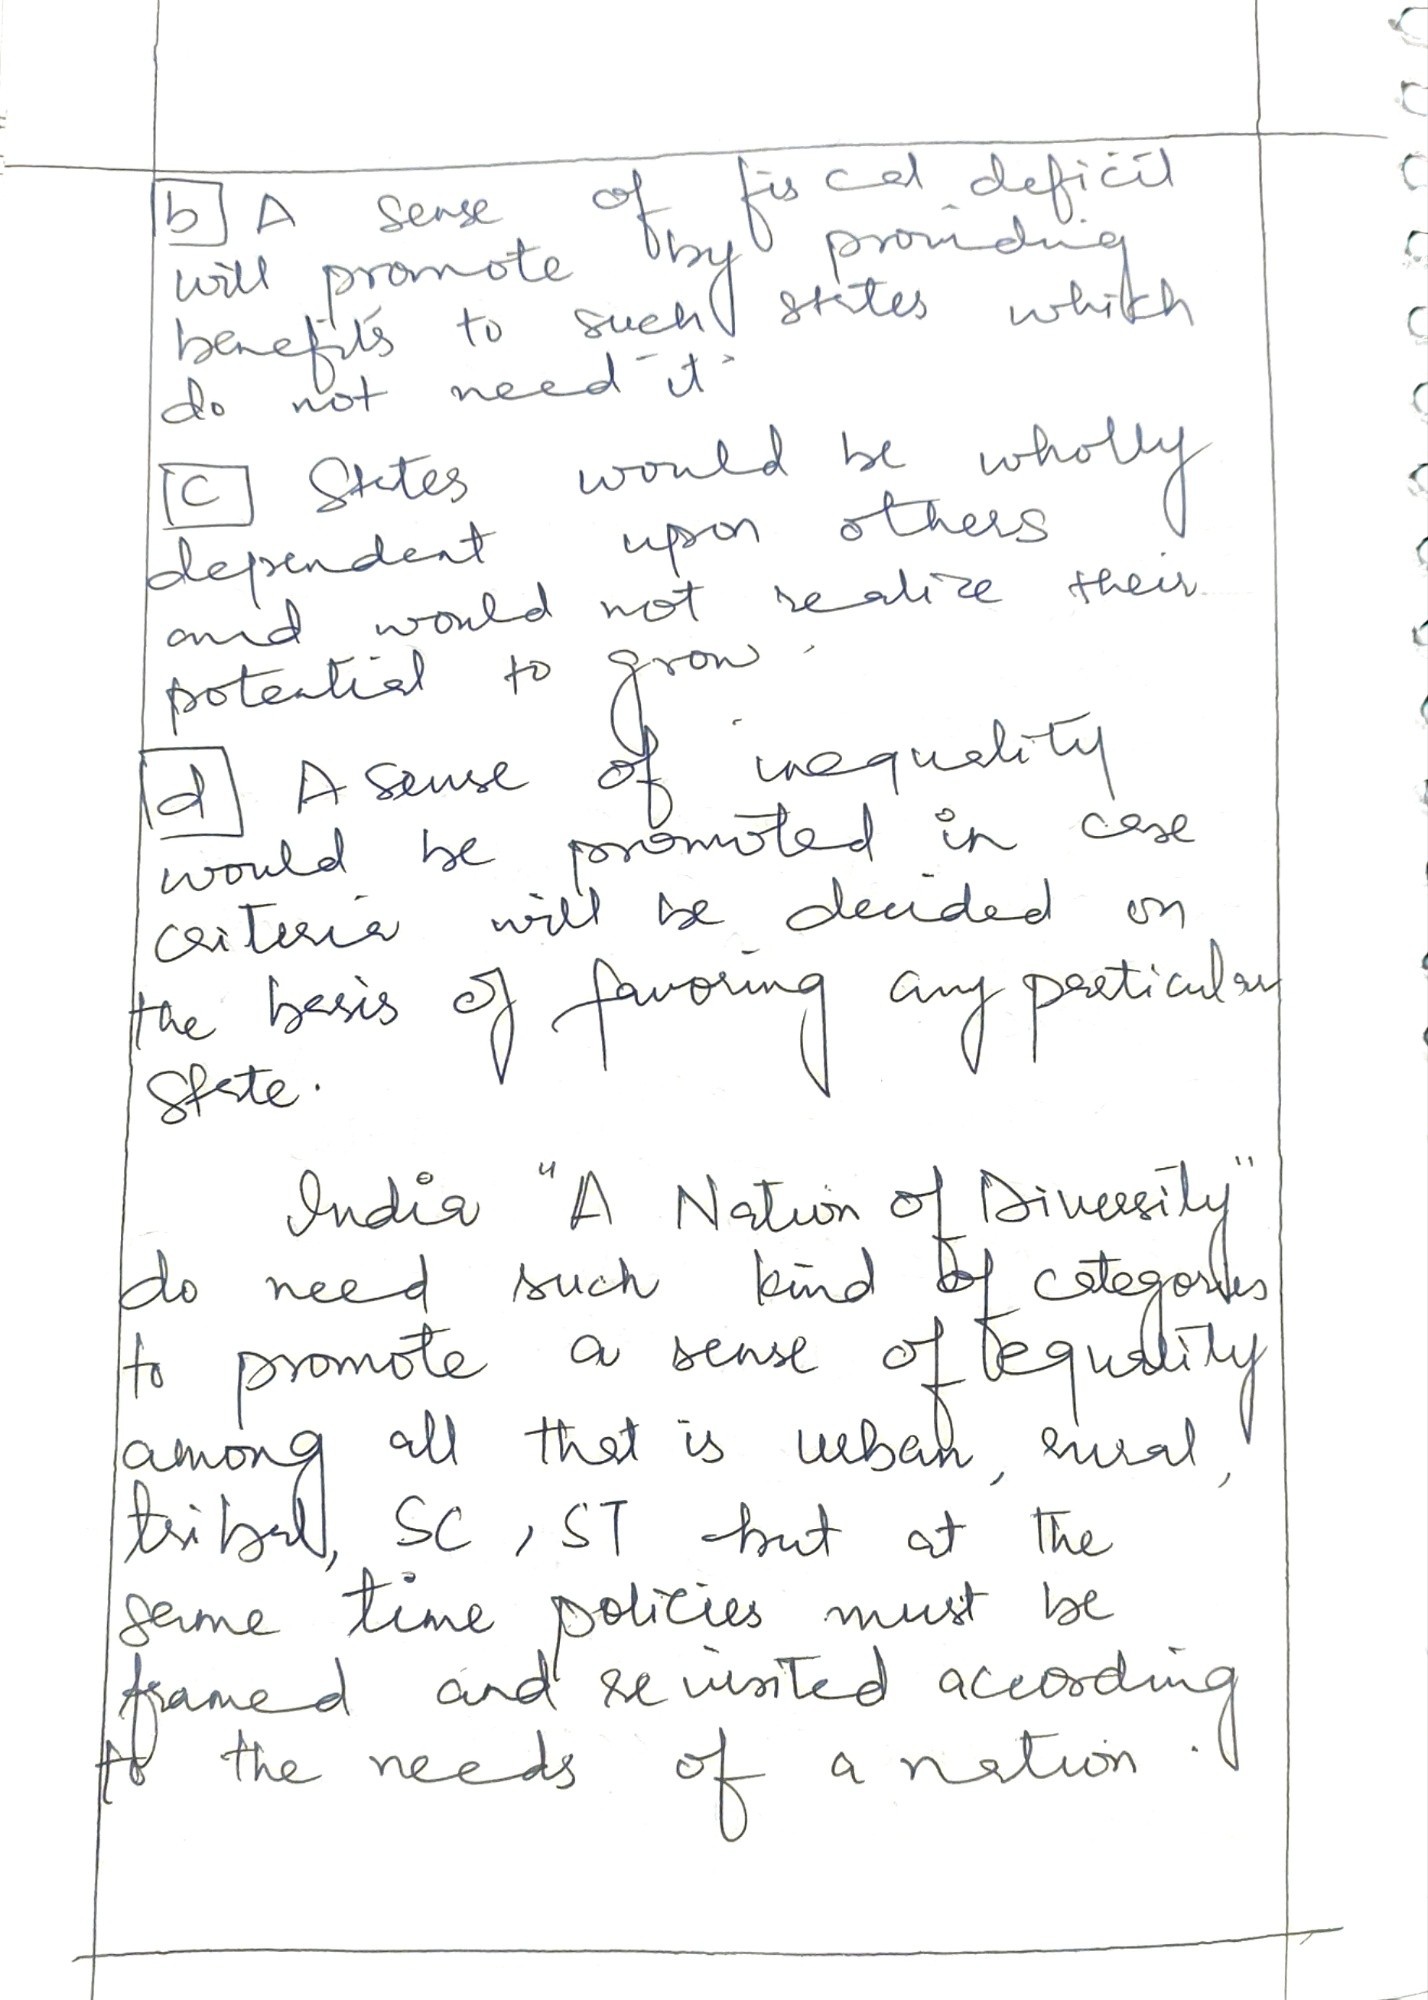 b A sense of fiscal deficit
will promote by providing
benefits to such states which
do not need it.
c States would be wholly
dependent upon others
and would not realize their
potential to grow.
d A sense of inequality
would be promoted in case
criteria will be decided on
the basis of favoring any particular
state.
India "A Nation of Diversity"
do need such kind of categories
to promote a sense of equality
among all that is urban, rural,
tribal, SC, ST but at the
same time policies must be
framed and revisited according
to the needs of a nation.